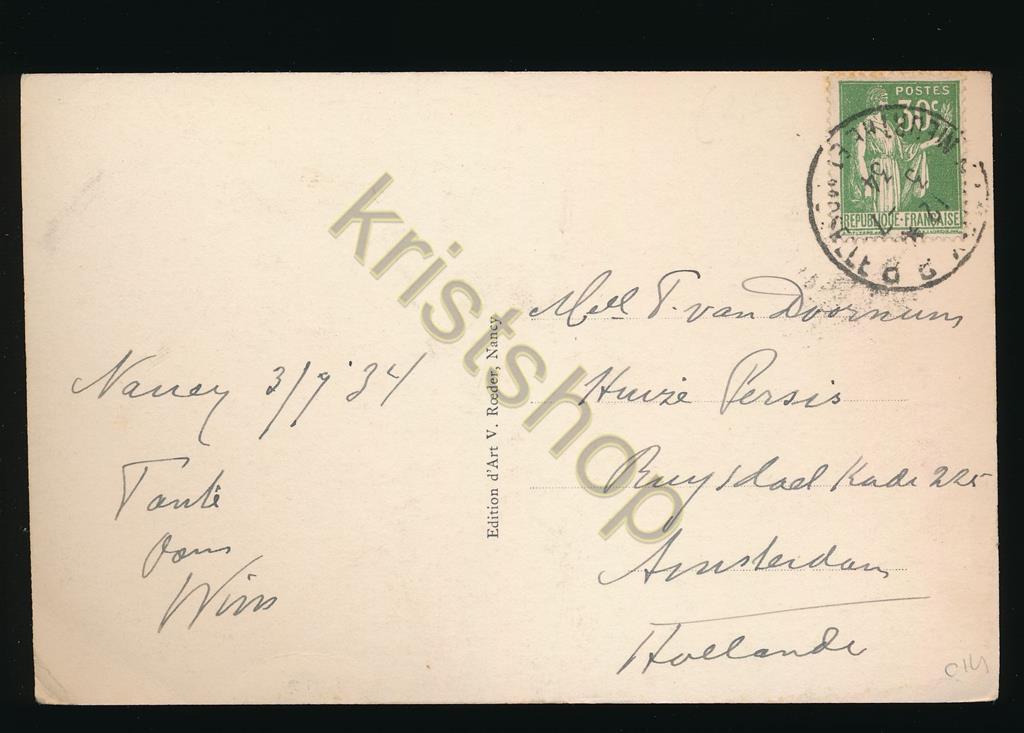 POSTES
30c
REPUBLIQUE-FRANÇAISE
34
Nancy 3/9 '34
Tante
Wim
Edition d'Art V. Rœder, Nancy
Mell T. van Doornum
Huize Persis
Ruysdael Kade 225
Amsterdam
Hollande
kristshop